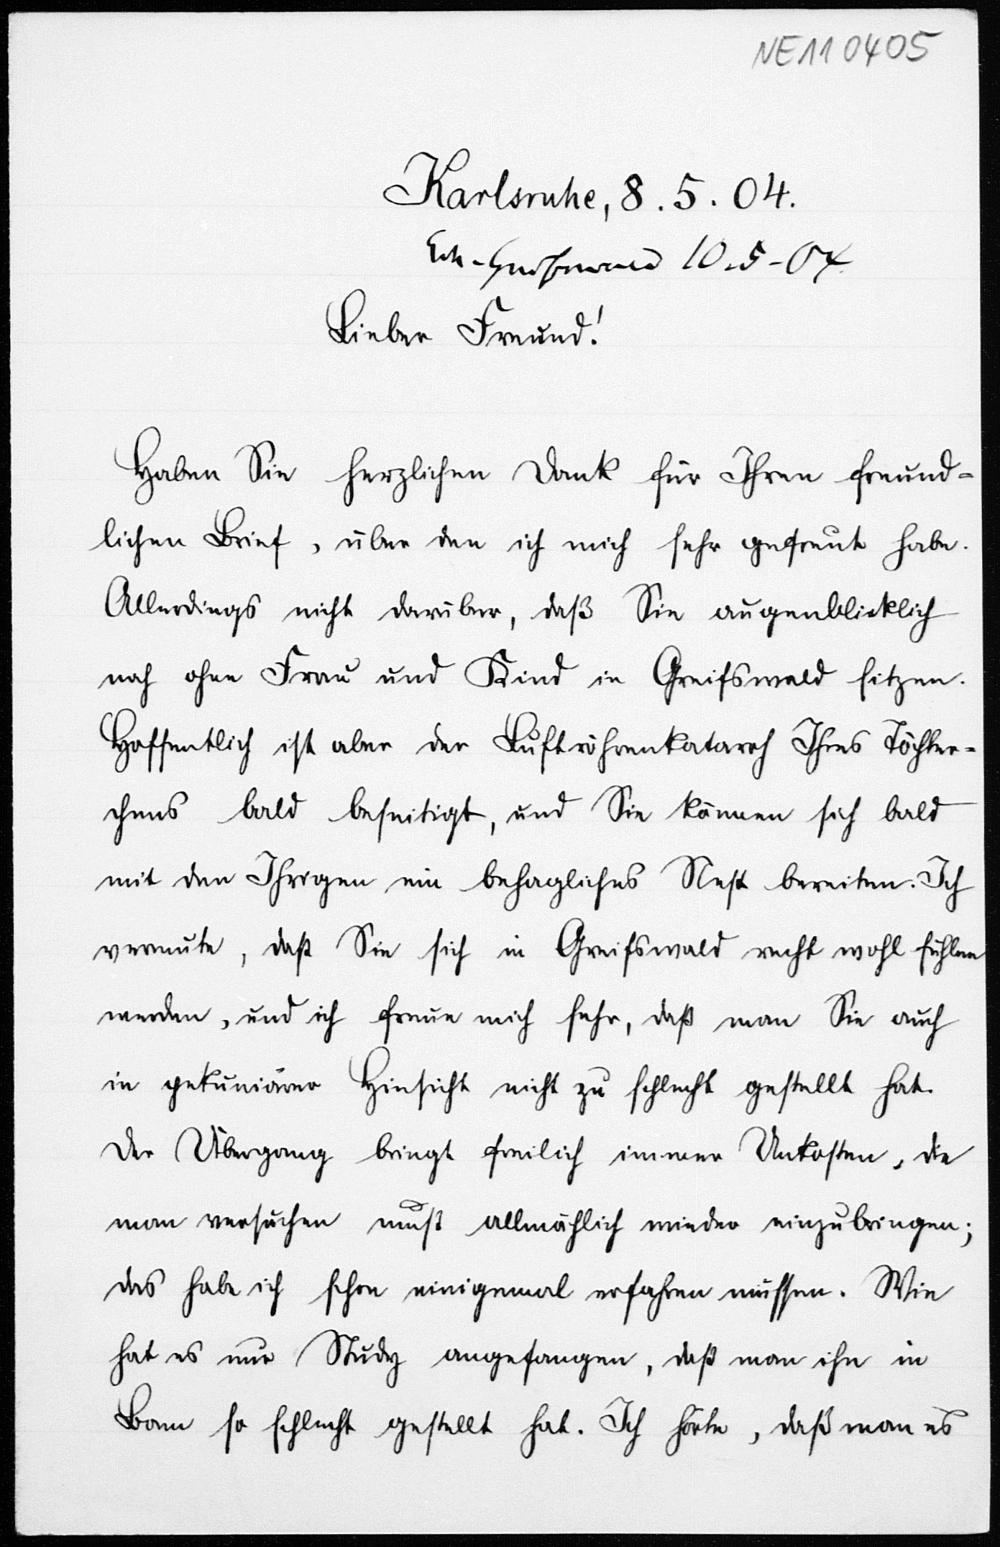 NE110405
Karlsruhe, 8.5.04.
Greifswald 10.5-04.
Lieber Freund!
Haben Sie herzlichen Dank für Ihren freund-
lichen Brief, über den ich mich sehr gefreut habe.
Allerdings nicht darüber, daß Sie augenblicklich
noch ohne Frau und Kind in Greifswald sitzen.
Hoffentlich ist aber der Luftröhrenkatarrh Ihres Töchter-
chens bald beseitigt, und Sie können sich bald
mit den Ihrigen ein behagliches Nest bereiten. Ich
vermute, daß Sie sich in Greifswald recht wohl fühlen
werden, und ich freue mich sehr, daß man Sie auch
in pekuniärer Hinsicht nicht zu schlecht gestellt hat.
Der Übergang bringt freilich immer Unkosten, die
man versuchen muß allmählich wieder einzubringen;
das habe ich schon einigemal erfahren müssen. Wie
hat es nur Study angefangen, daß man ihn in
Bonn so schlecht gestellt hat. Ich hörte, daß man es